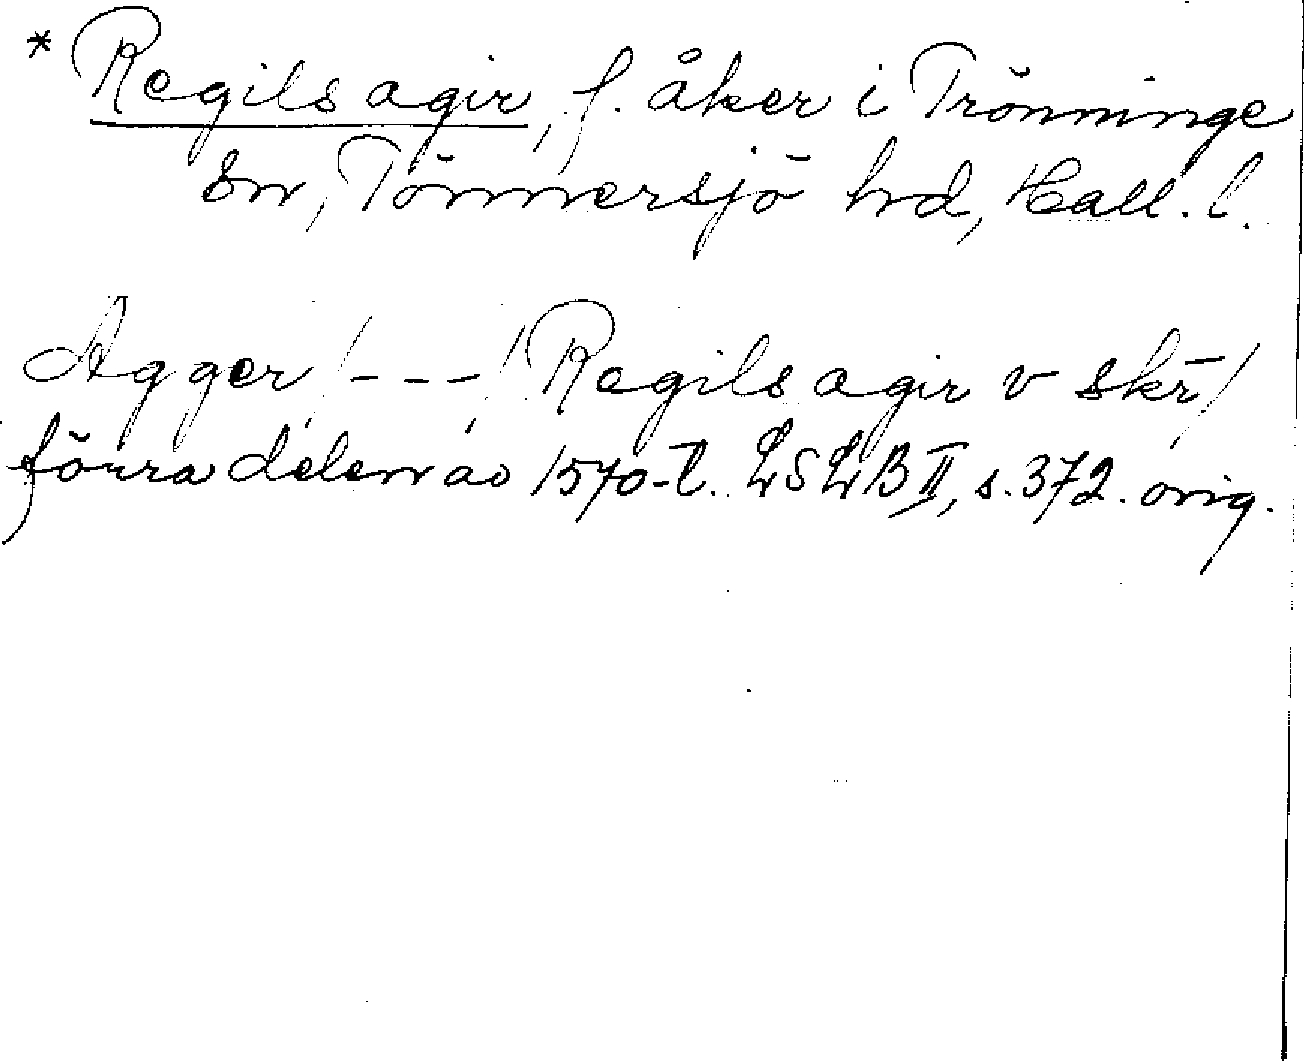 * Regils agir, f. åker i Trönninge
sn, Tönnersjö hrd, Hall. l.
Agger /---/ Regils agir v skr/
förra delen av 1570-t. LSLB II, s. 372. orig.